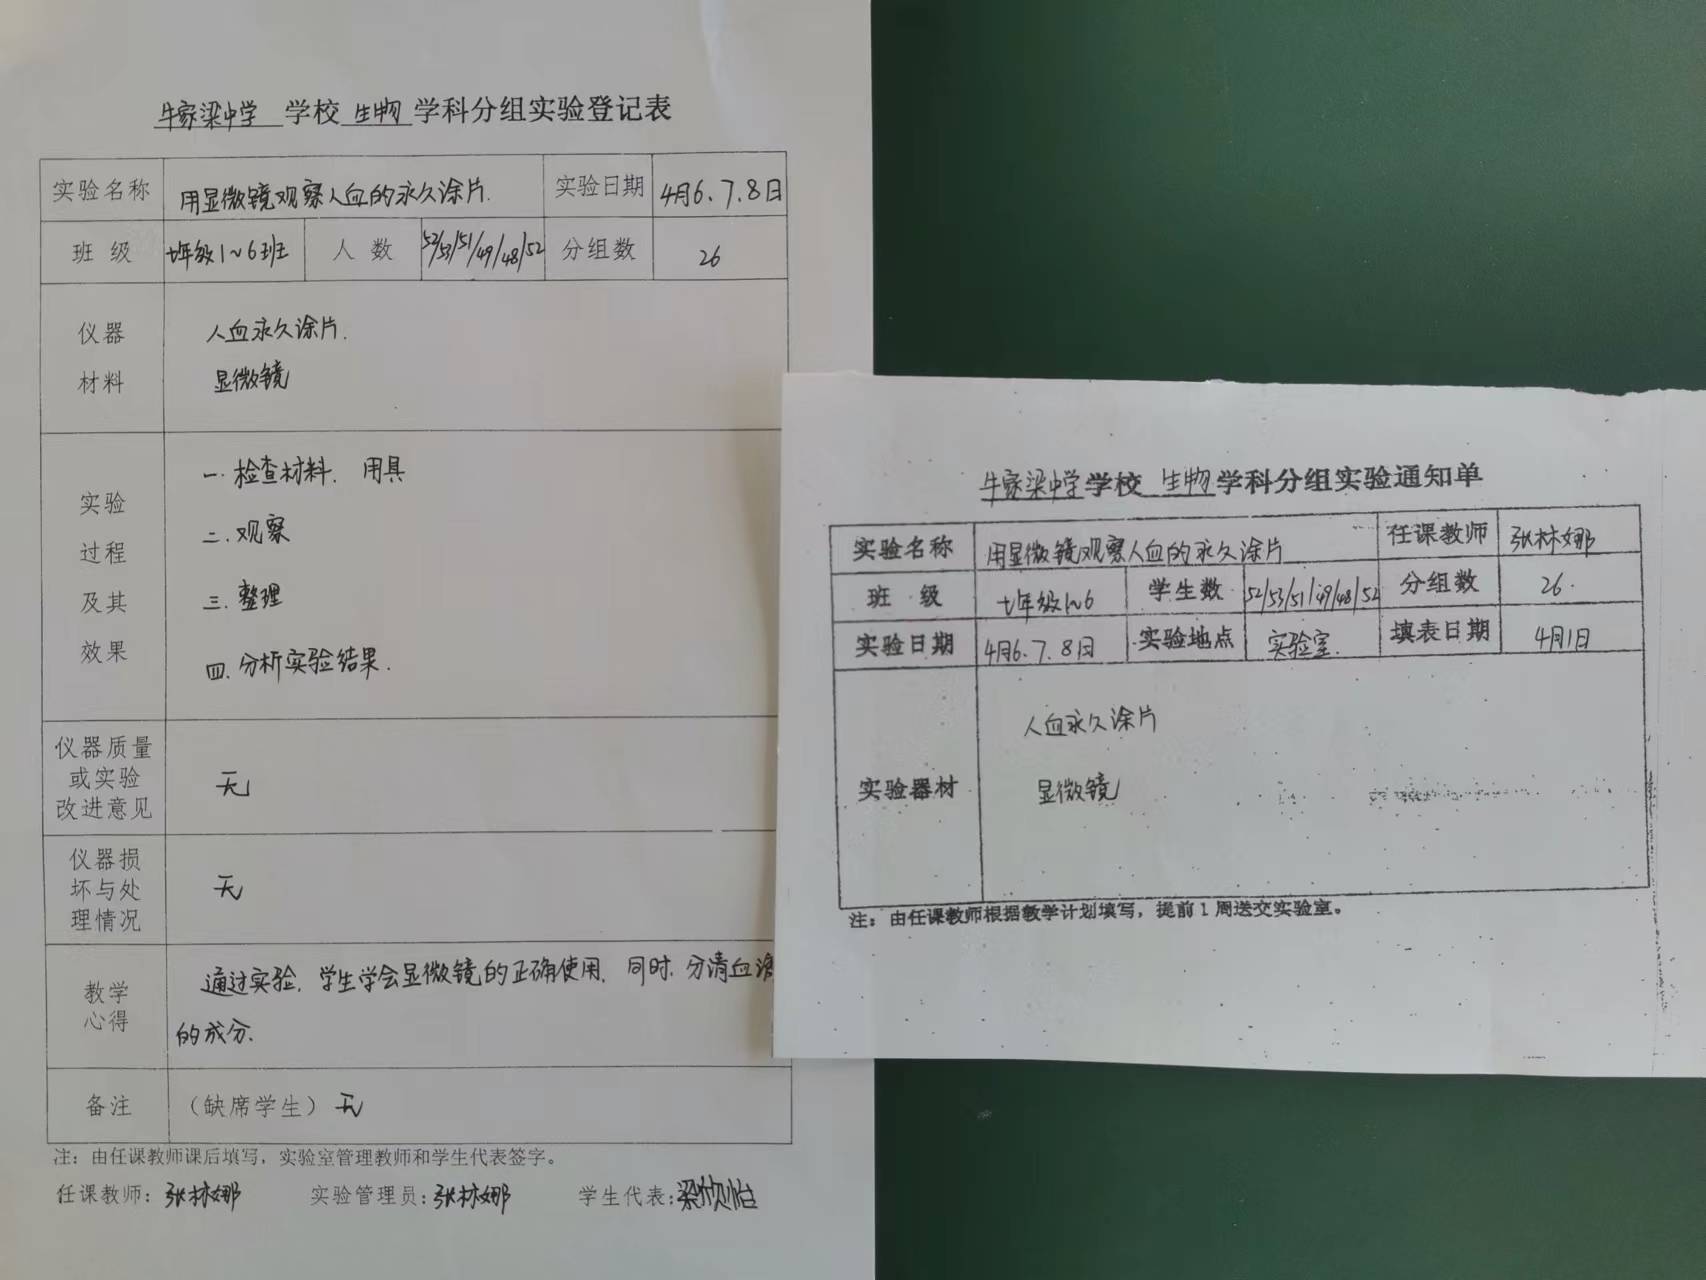 牛家梁中学 学校 生物 学科分组实验登记表
实验名称 用显微镜观察人血的永久涂片. 实验日期 4月6.7.8日
班 级 七年级1~6班 人 数 52/53/51/49/48/52 分组数 26
仪器
材料
人血永久涂片.
显微镜
实验
过程
及其
效果
一. 检查材料. 用具
二. 观察
三. 整理
四. 分析实验结果.
仪器质量
或实验
改进意见
无
仪器损
坏与处
理情况
无
教学
心得
通过实验. 学生学会显微镜的正确使用. 同时. 分清血液
的成分.
备注 (缺席学生) 无
注：由任课教师课后填写，实验室管理教师和学生代表签字。
任课教师：张林娜 实验管理员：张林娜 学生代表：梁欣怡
牛家梁中学学校 生物 学科分组实验通知单
实验名称 用显微镜观察人血的永久涂片 任课教师 张林娜
班 级 七年级1~6 学生数 52/53/51/49/48/52 分组数 26.
实验日期 4月6.7.8日 实验地点 实验室. 填表日期 4月1日
实验器材
人血永久涂片
显微镜
注：由任课教师根据教学计划填写，提前1周送交实验室。